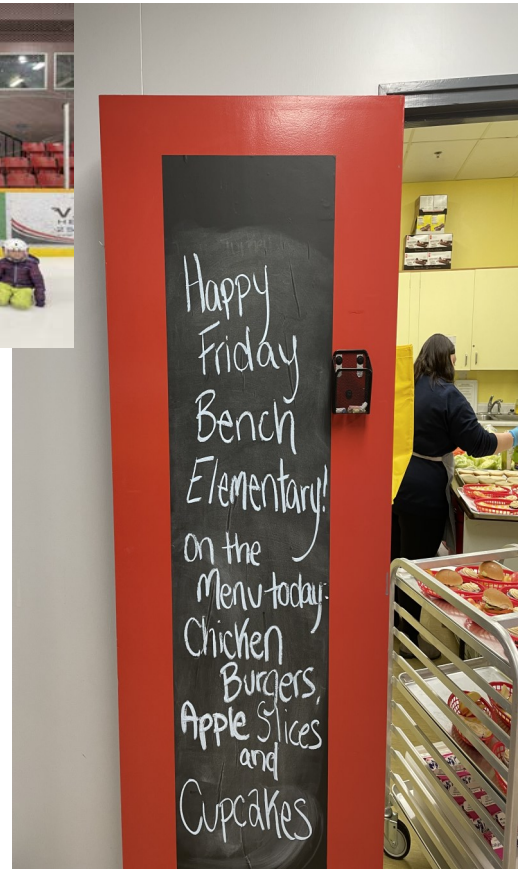 Happy
Friday
Bench
Elementary!
on the
Menu today:
Chicken
Burgers,
Apple Slices
and
Cupcakes